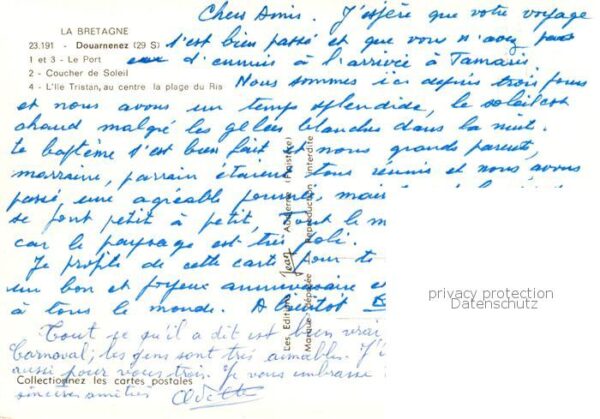 LA BRETAGNE
23.191 - Douarnenez (29 S)
1 et 3 - Le Port
2 - Coucher de Soleil
4 - L'Ile Tristan, au centre la plage du Ris
Chers Amis. J'espère que votre voyage
s'est bien passé et que vous n'avez pas
eu d'ennuis à l'arrivée à Tamaris.
Nous sommes ici depuis trois jours
et nous avons un temps splendide, le soleil est
chaud malgré les gelées blanches dans la nuit.
Le baptême s'est bien fait et nous grands parents,
marraine, parrain étaient tous réunis et nous avons
passé une agréable journée, mais
se font petit à petit, tout le m
car le paysage est très joli.
Je profite de cette carte pour te
un bon et joyeux anniversaire e
à tous le monde. A bientôt
Tout ce qu'il a dit est bien vrai
Carnaval; les gens sont très aimables. J'
aussi pour vous trois. Je vous embrasse
sincères amitiés Odette
Collectionnez les cartes postales
Les Editions Jean Audierne (Finistère)
Marque déposée - Reproduction interdite
privacy protection
Datenschutz